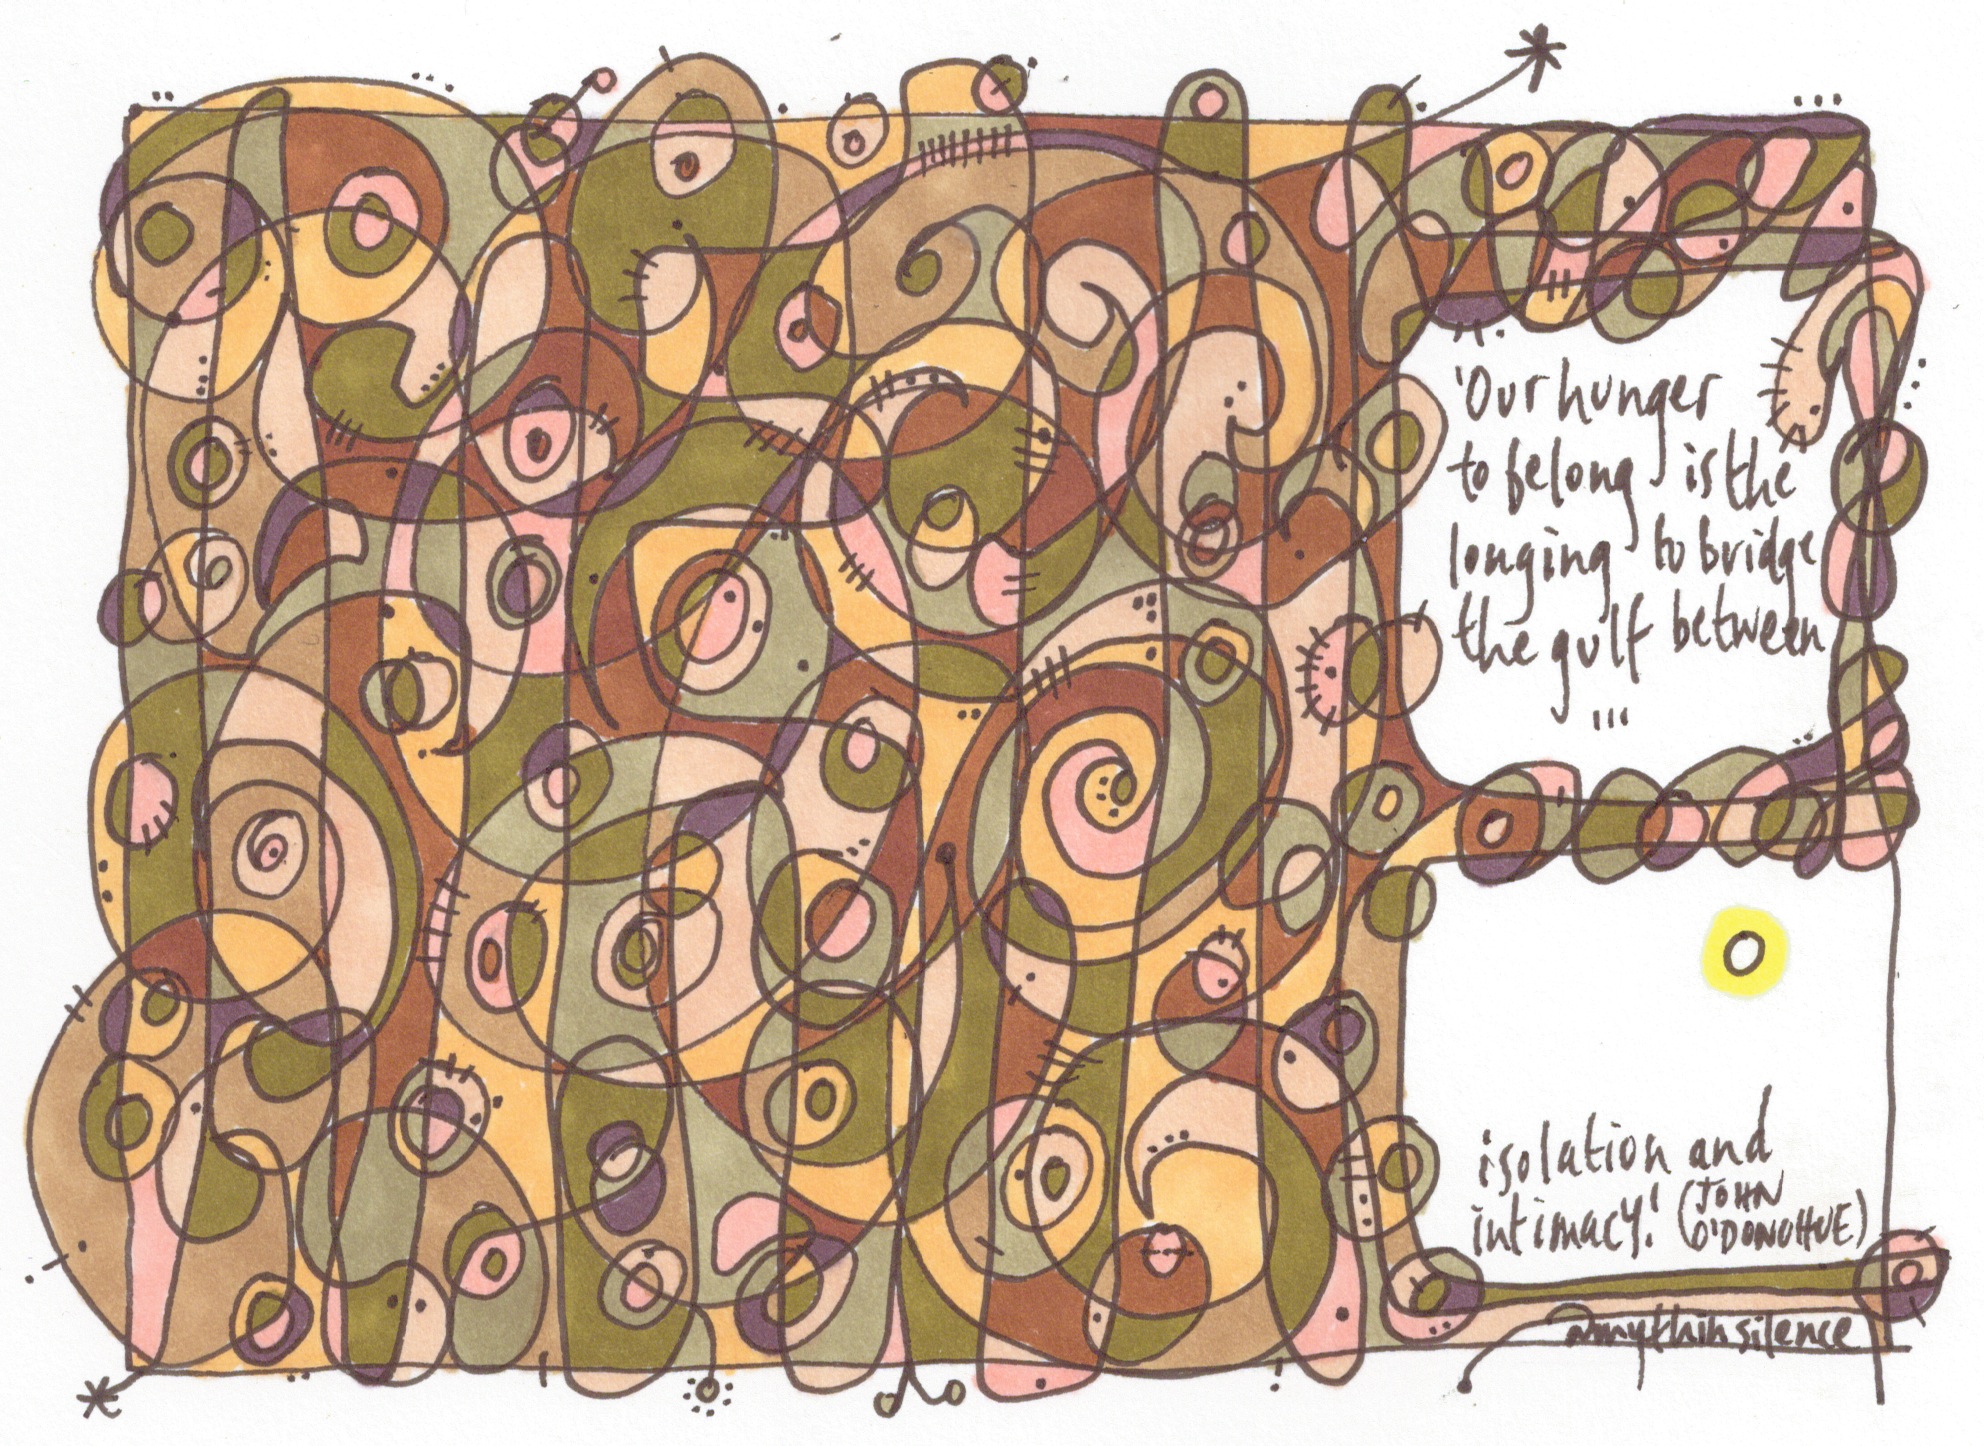 'Our hunger
to belong is the
longing to bridge
the gulf between
...
isolation and
intimacy.' (JOHN
O'DONOHUE)
@mythinsilence